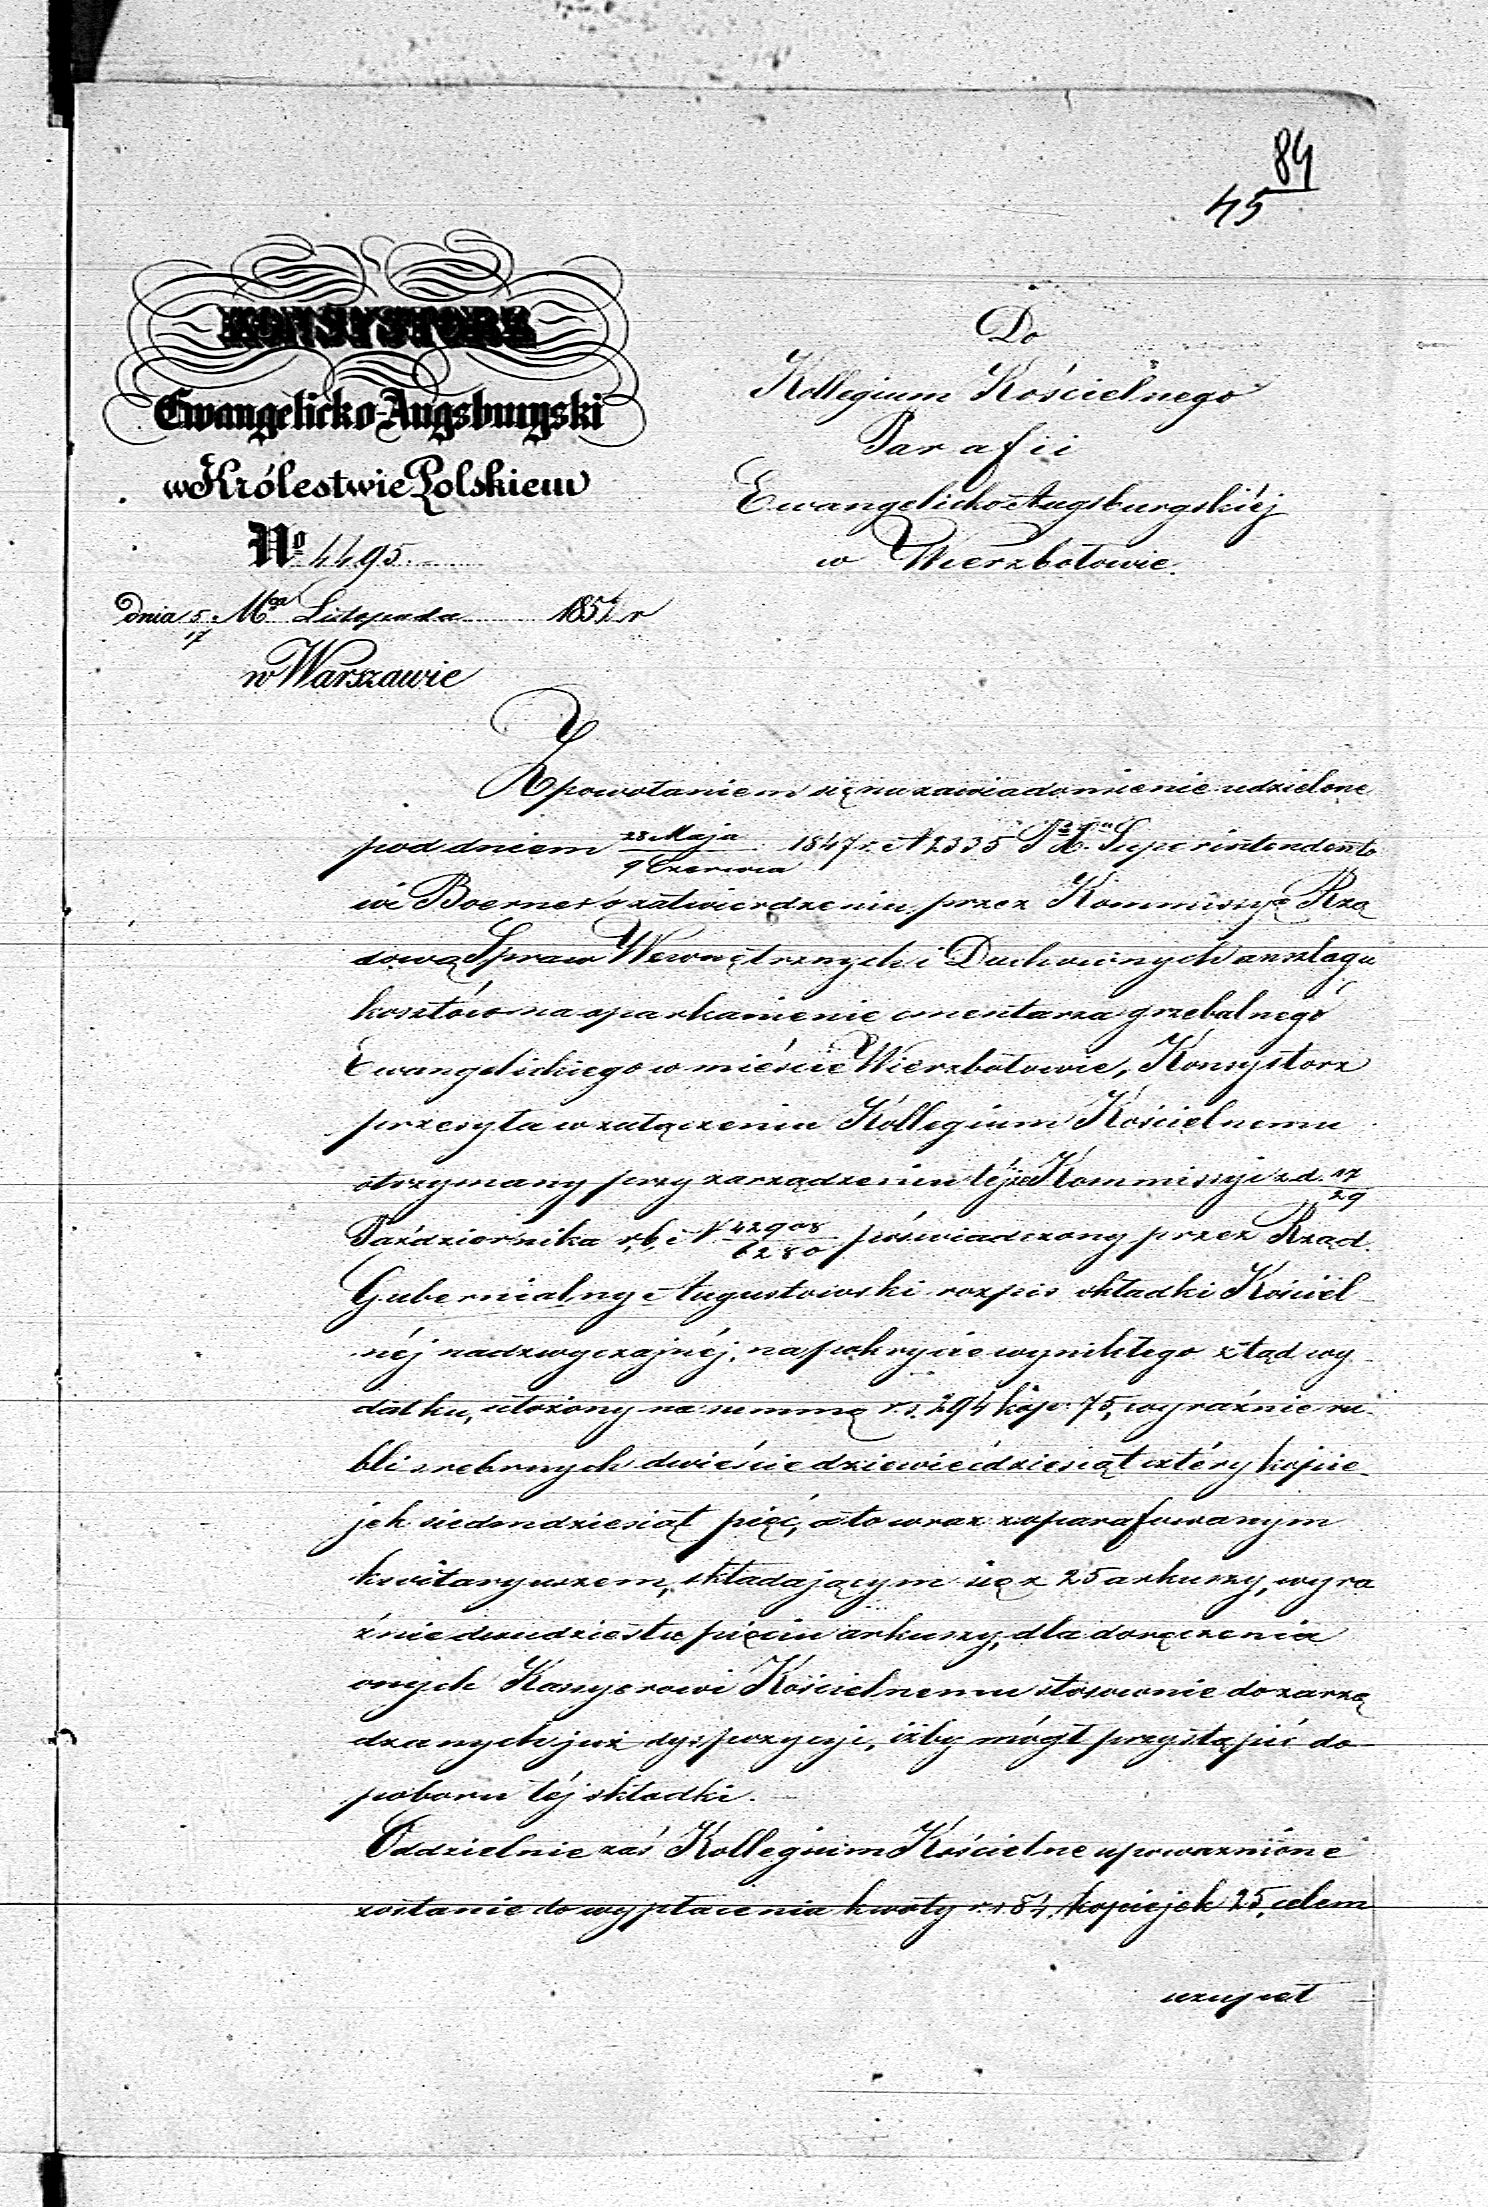 84
45
KONSYSTORZ
Ewangelicko-Augsburgski
w Królestwie Polskiem
No 4495.
Dnia 5/17 Mca Listopada 185 r
w Warszawie
Do
Kollegium Kościelnego
Parafii
Ewangelicko-Augsburgskiéj
w Wierzbołowie.
Z powołaniem się na zawiadomienie udzielone
pod dniem 28 Maja/9 Czerwca 1847 r. N 2335 Superintendento
wi Boerner o zatwierdzeniu przez Kommissyę Rzą
dową Spraw Wewnętrznych i Duchownych anszlagu
kosztów na oparkanienie cmentarza grzebalnego
Ewangelickiego w mieście Wierzbołowie, Konsystorz
przesyła w załączeniu Kollegium Kościelnemu
otrzymany przy zarządzeniu téjże Kommissyi z d. 17/29
Października r. b. N 42908/6280 poświadczony przez Rząd
Gubernialny Augustowski rozpis składki Kościel
néj nadzwyczajnéj, na pokrycie wynikłego ztąd wy
datku, ułożony na summę r. s. 294 kop. 75, wyraźnie ru-
bli srebrnych dwieście dziewięćdziesiąt cztéry kopie-
jek siedmdziesiąt pięć, a to wraz z oparafowanym
kwitaryuszem, składającym się z 25 arkuszy, wyra
źnie dwudziestu pięciu arkuszy, dla doręczenia
onych Kassyerowi Kościelnemu stosownie do zarzą
dzanych już dyspozycyi, iżby mógł przystąpić do
poboru téj składki.
Oddzielnie zaś Kollegium Kościelne upoważnione
zostanie do wypłacenia kwoty r. s 84, kopiejek 25, celem
uzupeł